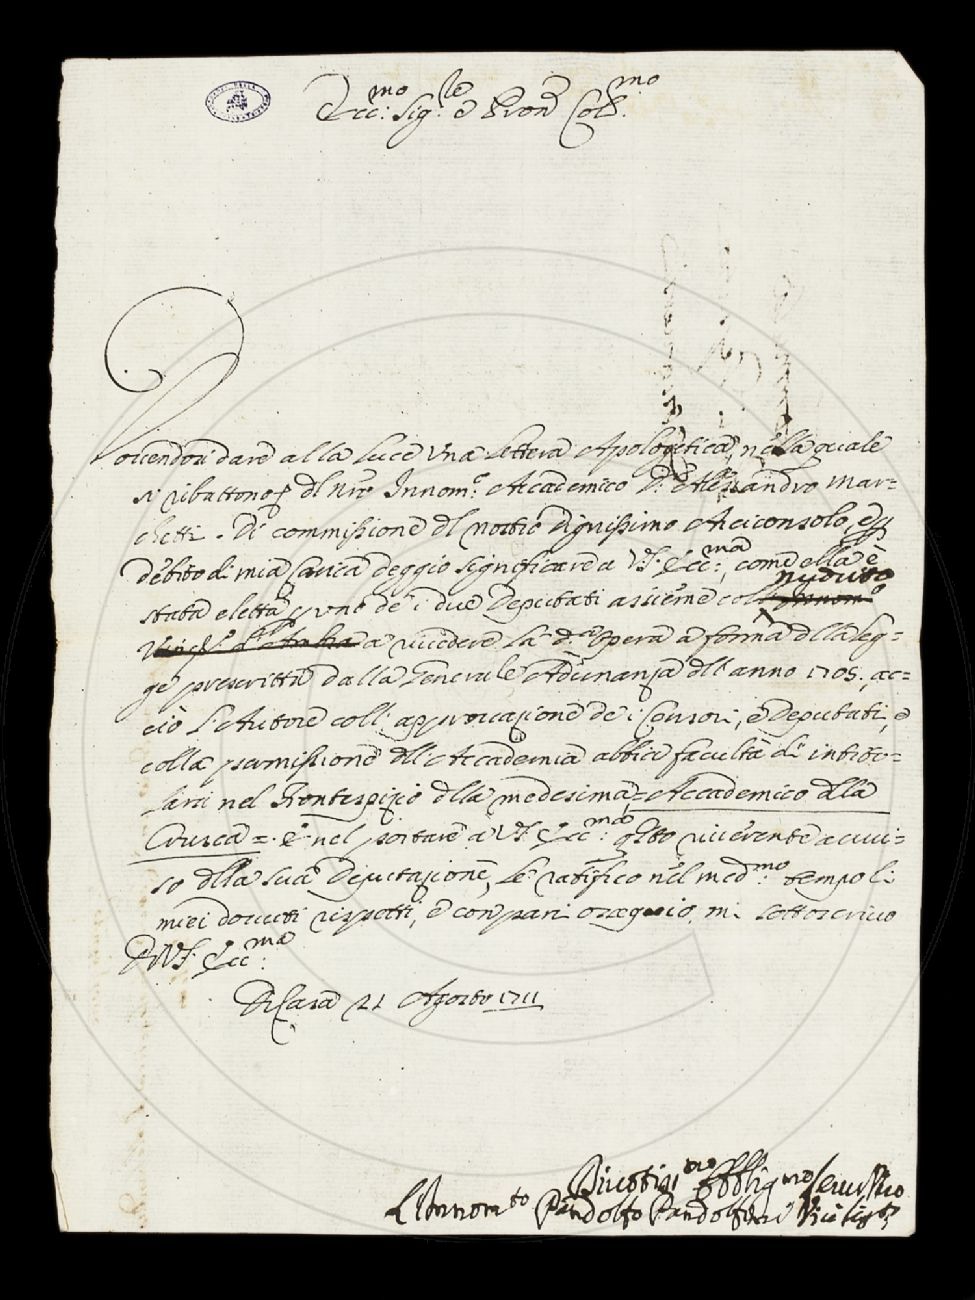 Ecc.mo Sig.re e Pron Col.mo
Volendosi dare alla luce una lettera Apologetica, nella quale
si ributtono dl nro Innom.o Accademico D.r Alessandro Mar=
chetti. Di commissione dl nostro dignissimo Arciconsolo, e p
debito di mia Carica deggio significare a VS. Ecc.ma, come ella è
nudrito
stata eletta p uno de i due Deputati assieme coll Innom.o
a rivedere la d.a Opera a forma dlla leg=
ge prescritta dalla Generale Adunanza dll'anno 1705; ac=
ciò l'Autore coll'approvazione de i Censori, e Deputati, e
colla permissione dll'Accademia abbia facultà di intito=
larsi nel Frontespizio dlla medesima = Accademico dlla
Crusca =. E nel portare a VS. Ecc.ma qsto riverente avvi=
so dlla sua Deputazione, le ratifico nel med.mo tempo li
miei dovuti rispetti, e con pari ossequio mi sottoscrivo
Di VS. Ecc.ma
Di Casa 21 Agosto 1711
Divotiss.mo Obblig.mo Serv.re
L'Innom.to Pandolfo Pandolfini